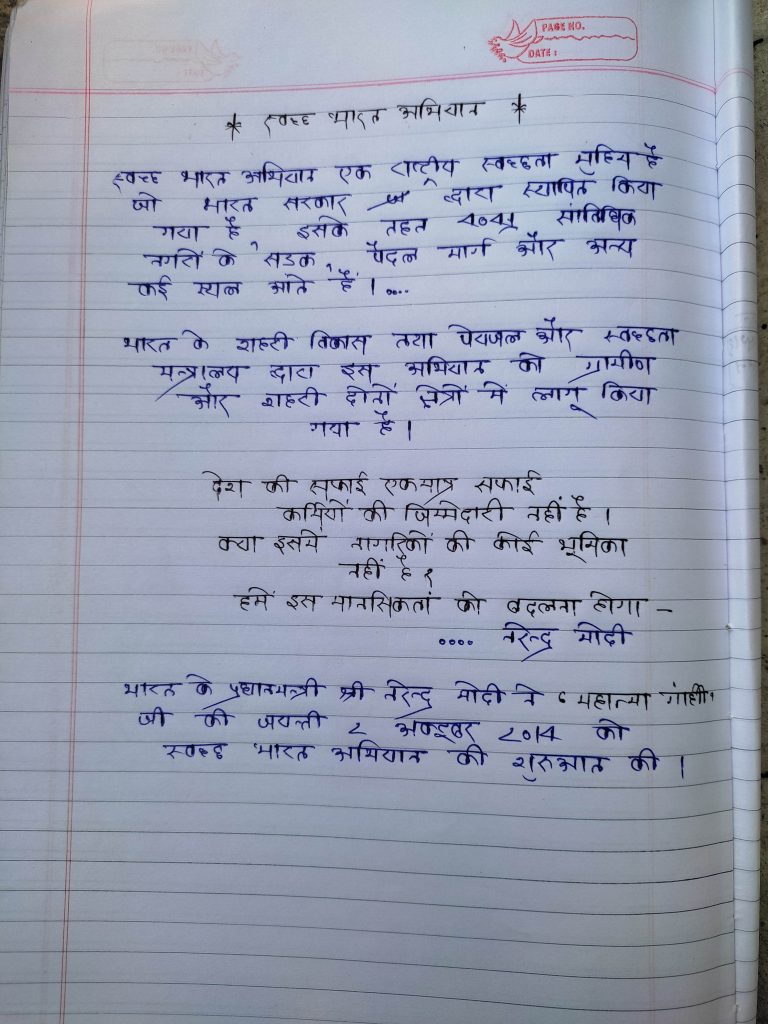 PAGE NO.
DATE :
* स्वच्छ भारत अभियान *
स्वच्छ भारत अभियान एक राष्ट्रीय स्वच्छता मुहिम है
जो भारत सरकार द्वारा स्थापित किया
गया है, इसके तहत 4041 सांविधिक
नगरों के सडक, पैदल मार्ग और अन्य
कई स्थल आते हैं । ....
भारत के शहरी विकास तथा पेयजल और स्वच्छता
मन्त्रालय द्वारा इस अभियान को ग्रामीण
और शहरी दोनों क्षेत्रों में लागू किया
गया है ।
देश की सफाई एकमात्र सफाई
कर्मियों की जिम्मेदारी नहीं है ।
क्या इसमें नागरिकों की कोई भूमिका
नहीं है ?
हमें इस मानसिकता को बदलना होगा –
.... नरेन्द्र मोदी
भारत के प्रधानमन्त्री श्री नरेन्द्र मोदी ने ' महात्मा गांधी '
जी की जयन्ती 2 अक्टूबर 2014 को
स्वच्छ भारत अभियान की शुरुआत की ।